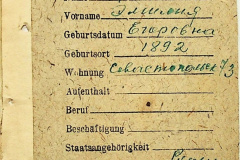 Vorname Эмилия
Geburtsdatum Егоровна
Geburtsort 1892
Wohnung Севастопольск 3
Aufenthalt
Beruf
Beschäftigung
Staatsangehörigkeit